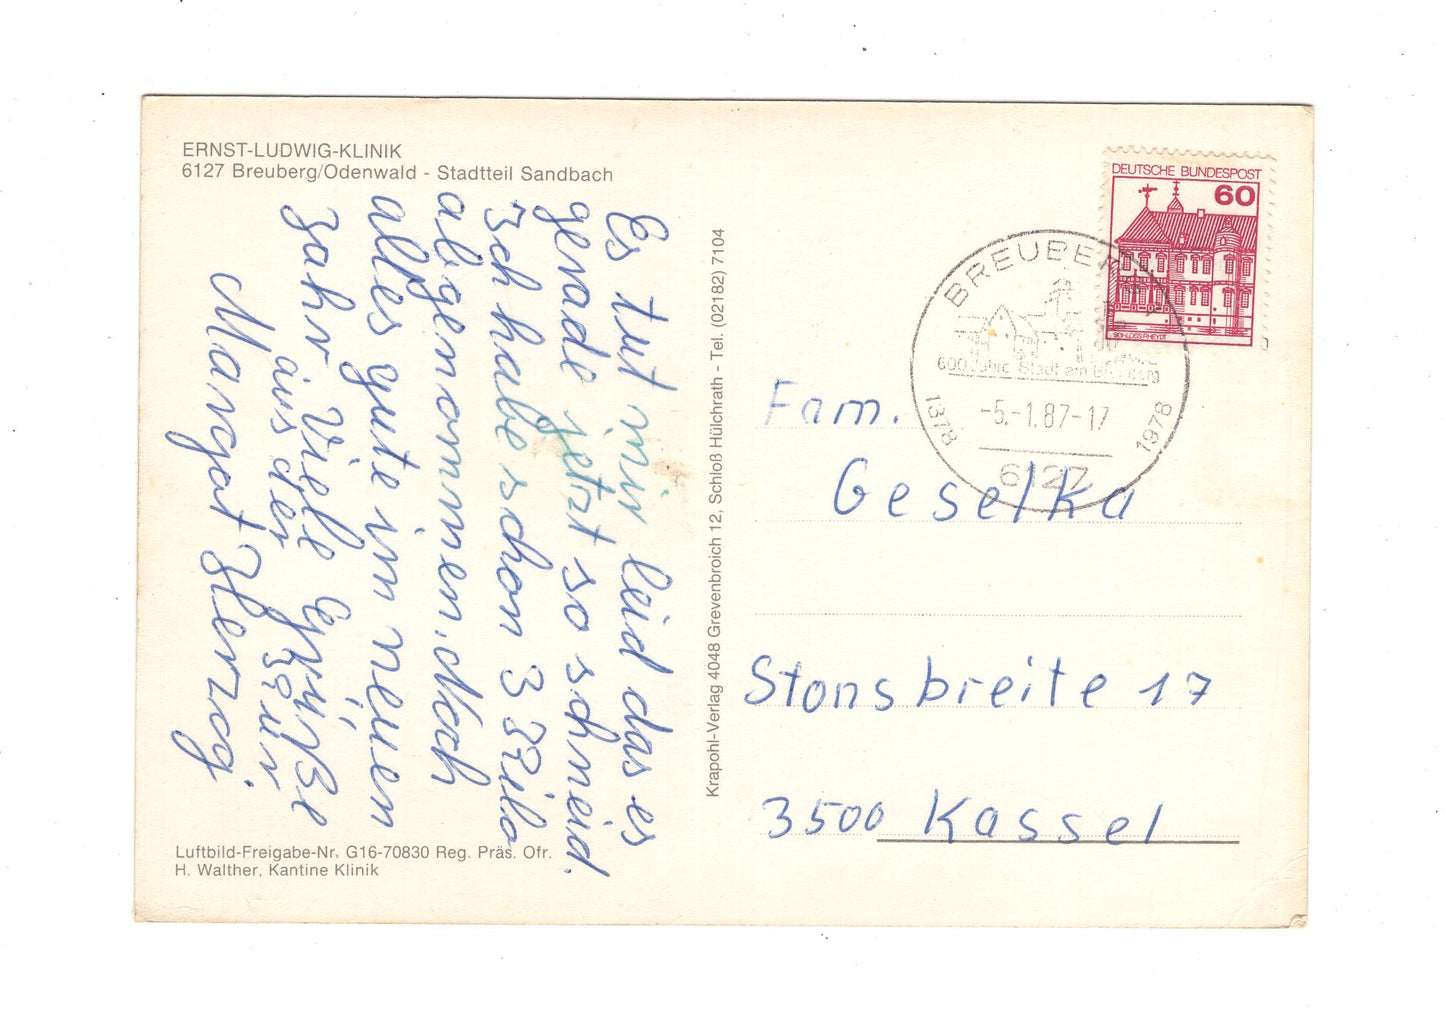 ERNST-LUDWIG-KLINIK
6127 Breuberg/Odenwald - Stadtteil Sandbach
Es tut mir leid das es
gerade jetzt so schneid.
Ich habe schon 3 Kilo
abgenommen. Noch
alles gute im neuen
Jahr Viele Grüße
aus der Kur
Margot Herzog
Luftbild-Freigabe-Nr. G16-70830 Reg. Präs. Ofr.
H. Walther, Kantine Klinik
Krapohl-Verlag 4048 Grevenbroich 12, Schloß Hülchrath - Tel. (02182) 7104
DEUTSCHE BUNDESPOST
60
SCHLOSS RHEYDT
BREUBERG
600 Jahre Stadt am Breuberg
1378
-5.-1.87-17
1978
6127
Fam.
Geselka
Stonsbreite 17
3500 Kassel